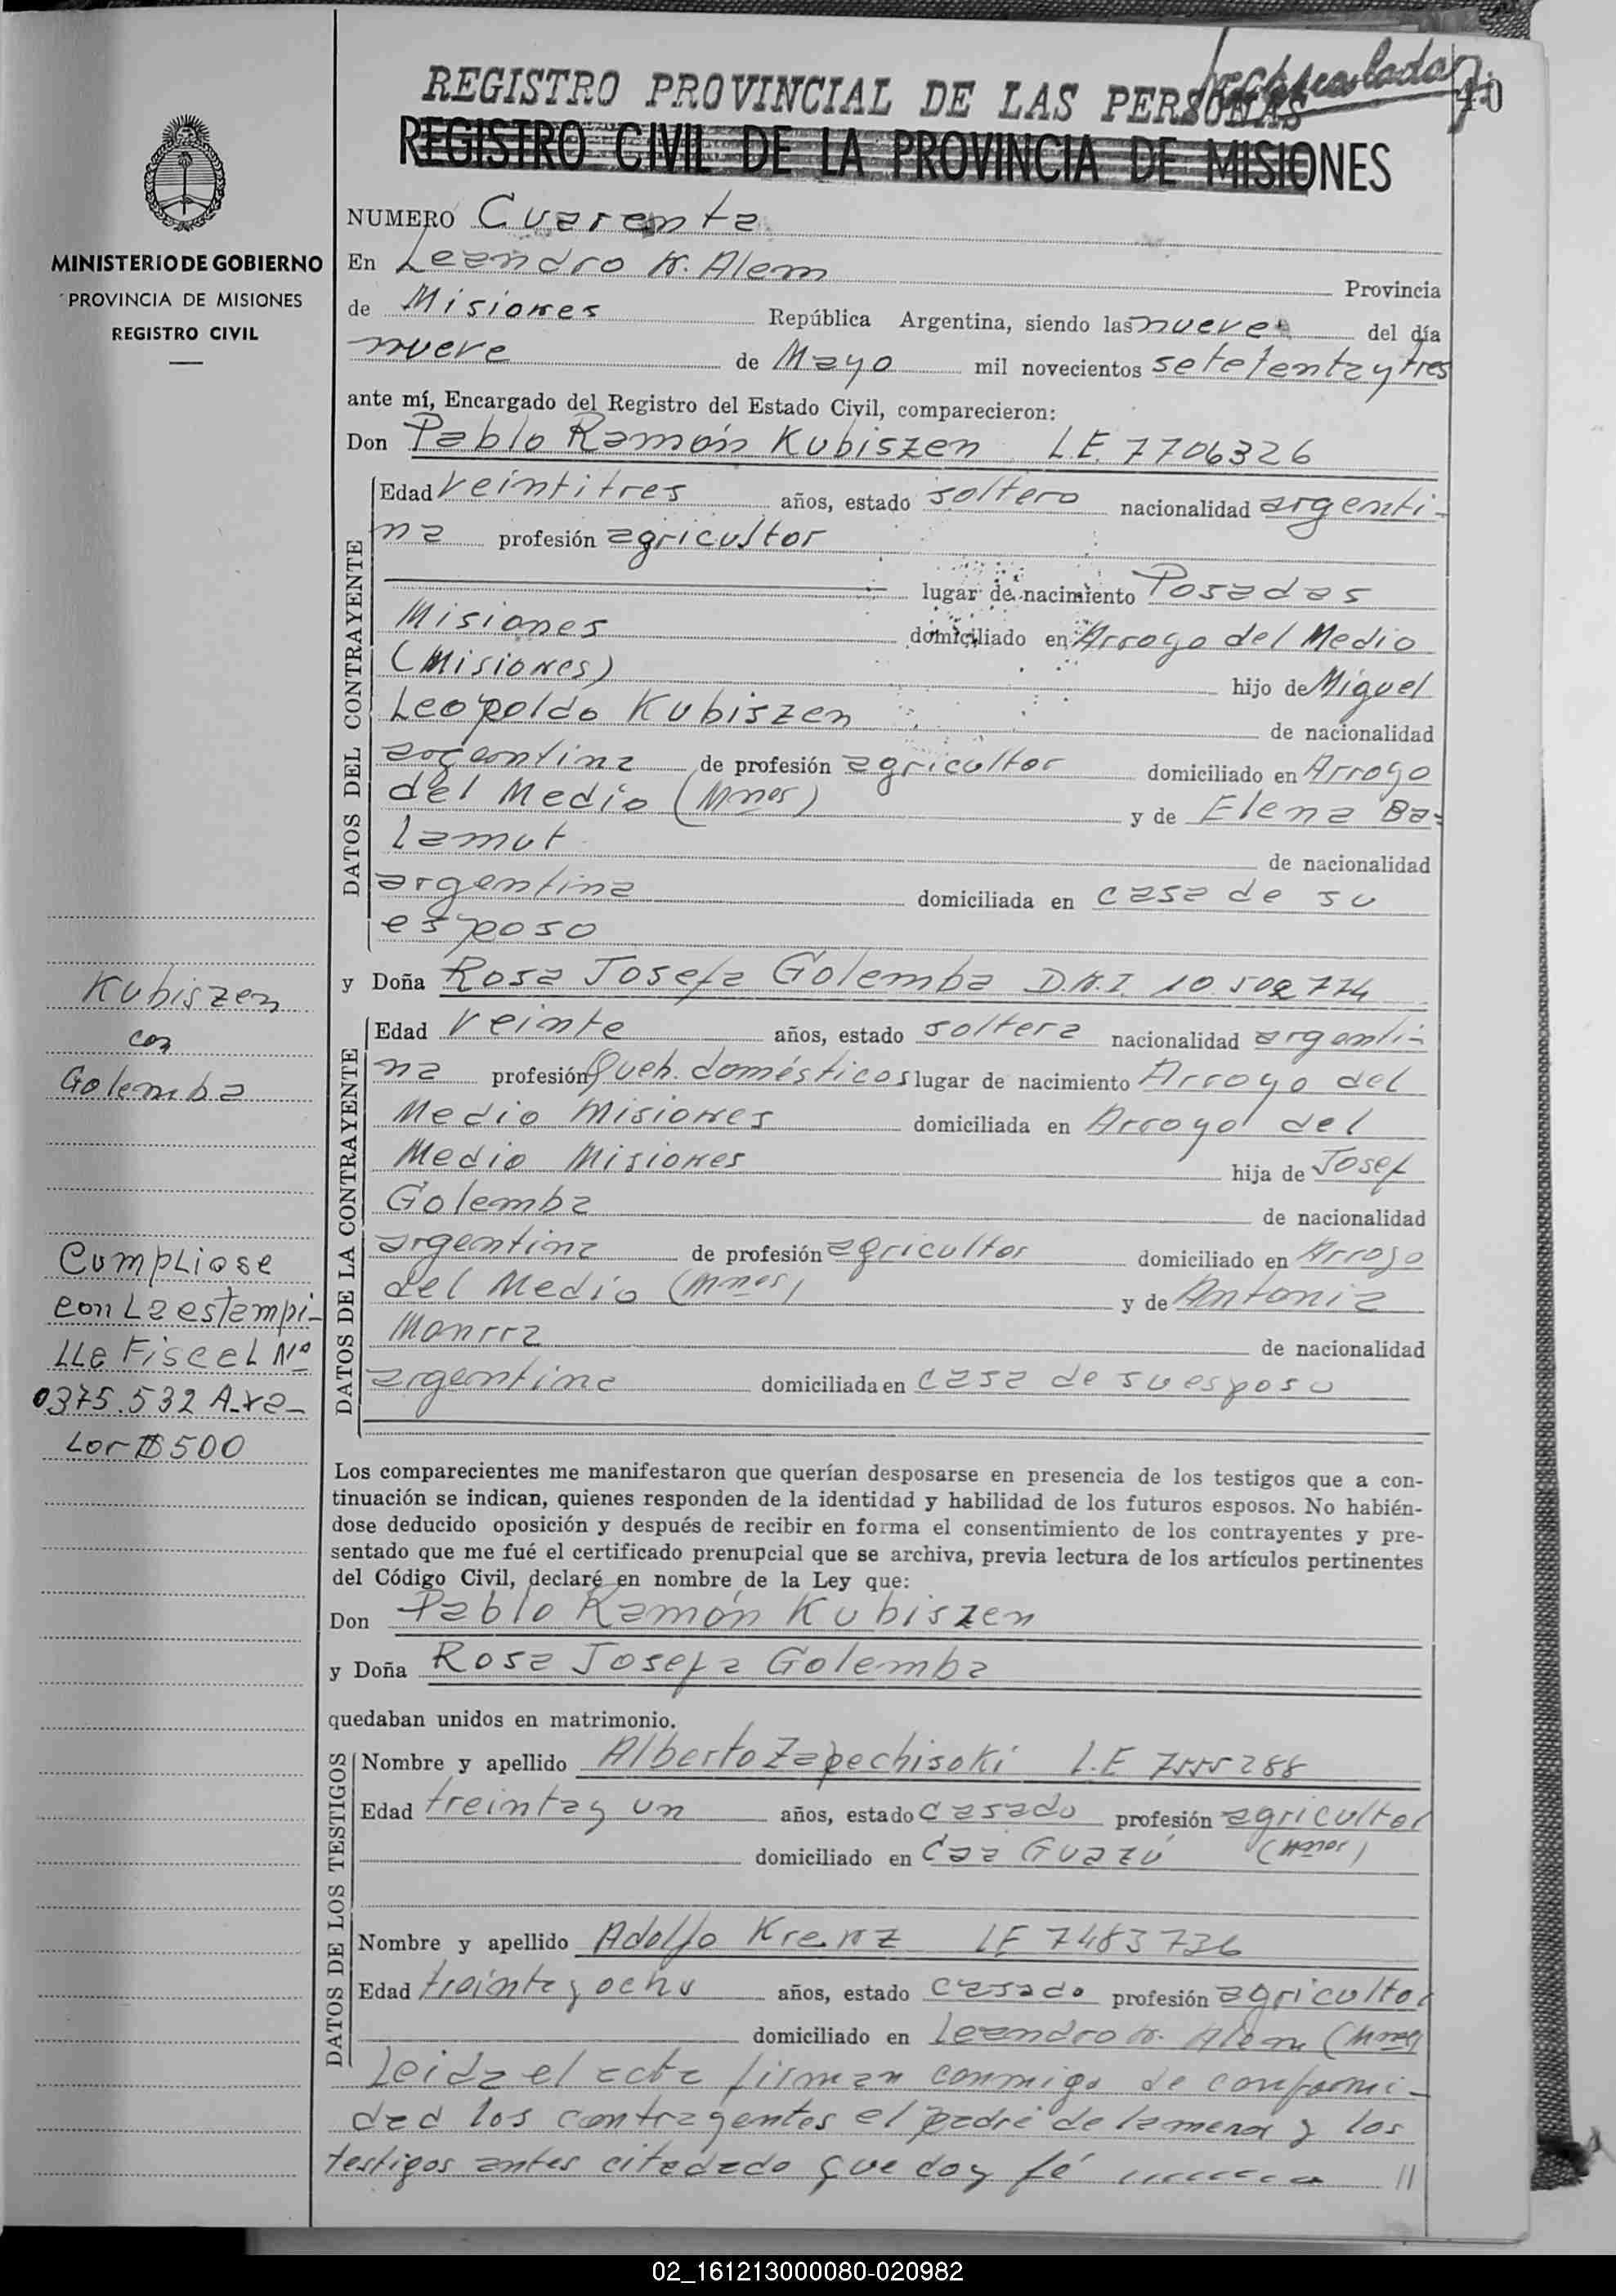 REGISTRO PROVINCIAL DE LAS PERSONAS
40
REGISTRO CIVIL DE LA PROVINCIA DE MISIONES
MINISTERIO DE GOBIERNO
PROVINCIA DE MISIONES
REGISTRO CIVIL
NUMERO Cuarenta
En Leandro N. Alem Provincia
de Misiones República Argentina, siendo las nueve del día
nueve de Mayo mil novecientos setetentaytres
ante mí, Encargado del Registro del Estado Civil, comparecieron:
Don Pablo Ramón Kubiszen L.E. 7706326
DATOS DEL CONTRAYENTE
Edad veintitres años, estado soltero nacionalidad argenti-
na profesión agricultor
lugar de nacimiento Posadas
Misiones domiciliado en Arroyo del Medio
(Misiones) hijo de Miguel
Leopoldo Kubiszen de nacionalidad
argentina de profesión agricultor domiciliado en Arroyo
del Medio (Mnes) y de Elena Ba=
lamut de nacionalidad
argentina domiciliada en casa de su
esposo
y Doña Rosa Josefa Golemba D.N.I. 10.502774
DATOS DE LA CONTRAYENTE
Edad veinte años, estado soltera nacionalidad argenti-
na profesión Queh. domésticos lugar de nacimiento Arroyo del
Medio Misiones domiciliada en Arroyo del
Medio Misiones hija de Josef
Golemba de nacionalidad
argentina de profesión agricultor domiciliado en Arroyo
del Medio (Mnes) y de Antonia
de nacionalidad
argentina domiciliada en casa de su esposo
Kubiszen
con
Golemba
Cumpliose
con La estampi-
LLa Fiscal Nº
0375.532 A-va-
Lor $ 500
Los comparecientes me manifestaron que querían desposarse en presencia de los testigos que a con-
tinuación se indican, quienes responden de la identidad y habilidad de los futuros esposos. No habién-
dose deducido oposición y después de recibir en forma el consentimiento de los contrayentes y pre-
sentado que me fué el certificado prenupcial que se archiva, previa lectura de los artículos pertinentes
del Código Civil, declaré en nombre de la Ley que:
Don Pablo Ramón Kubiszen
y Doña Rosa Josefa Golemba
quedaban unidos en matrimonio.
DATOS DE LOS TESTIGOS
Nombre y apellido Alberto Zapechisoki L.E 7555288
Edad treintay un años, estado casado profesión agricultor
domiciliado en Caa Guazú (Mnes)
Nombre y apellido Adolfo Krenz LE 7483736
Edad treinta y ocho años, estado casado profesión agricultor
domiciliado en Leandro N. Alem (Mnes)
Leida el acta firman conmigo de conformi-
dad los contrayentes el padre de la menor y los
testigos antes citadado que doy fé //
02_161213000080-020982